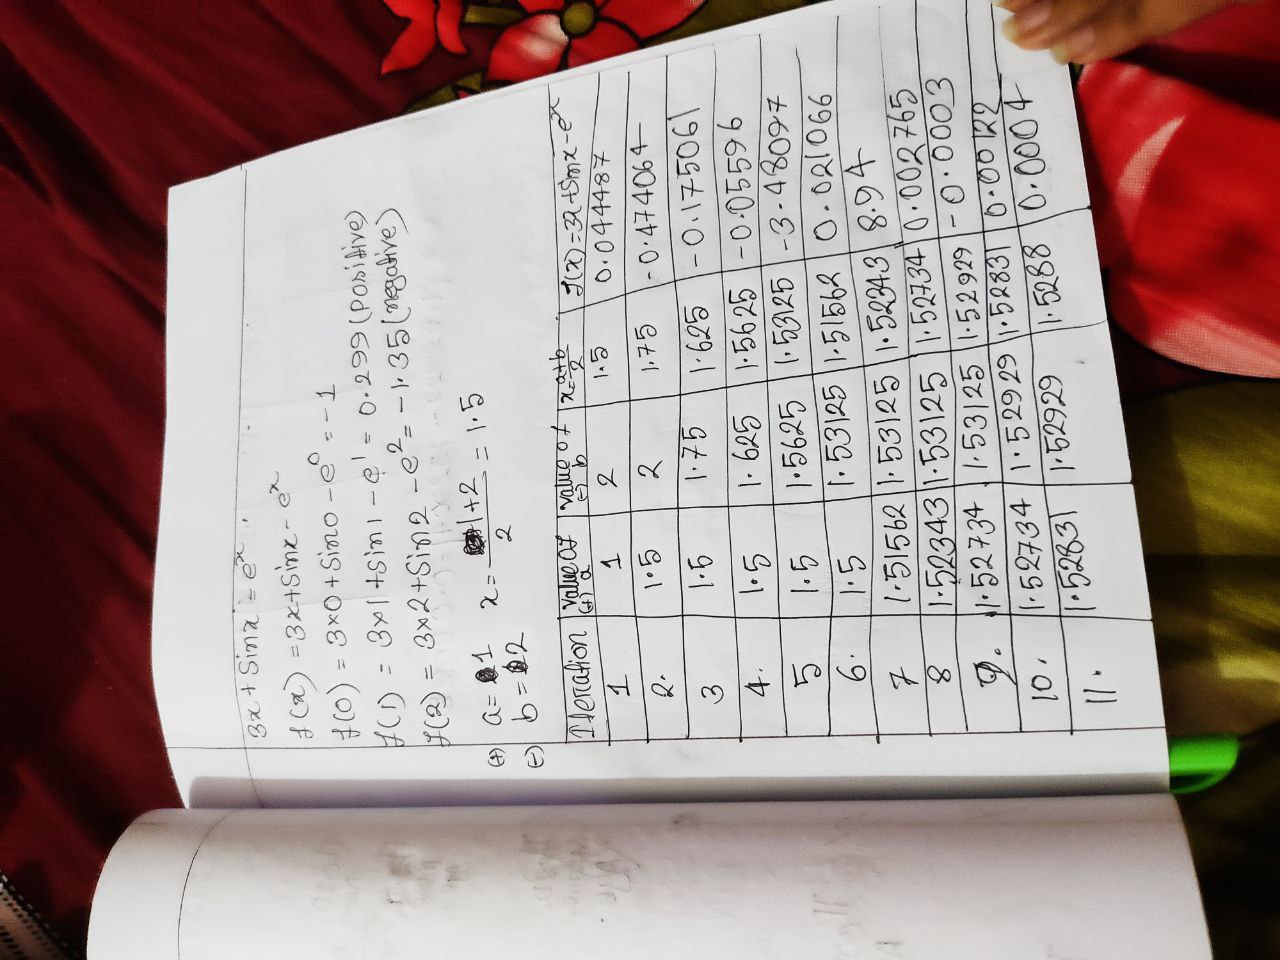 3x + Sinx - eˣ
f(x) = 3x+Sinx - eˣ
f(0) = 3×0 + Sin0 - e⁰ = -1
f(1) = 3×1 + Sin1 - e¹ = 0.299 (Positive)
f(2) = 3×2 + Sin2 - e² = -1.35 (negative)
(+) a = 1 x = 1+2/2 = 1.5
(-) b = 2
Iteration value of (+) a value of (-) b x = a+b/2 f(x) = 3x+Sinx-eˣ
1 1 2 1.5 0.044487
2. 1.5 2 1.75 -0.474064
3 1.5 1.75 1.625 -0.175061
4. 1.5 1.625 1.5625 -0.05596
5 1.5 1.5625 1.53125 -3.48097
6. 1.5 1.53125 1.51562 0.021066
7 1.51562 1.53125 1.52343 8.94
8 1.52343 1.53125 1.52734 0.002765
9. 1.52734 1.53125 1.52929 -0.0003
10. 1.52734 1.52929 1.52831 0.00122
11. 1.52831 1.52929 1.5288 0.0004